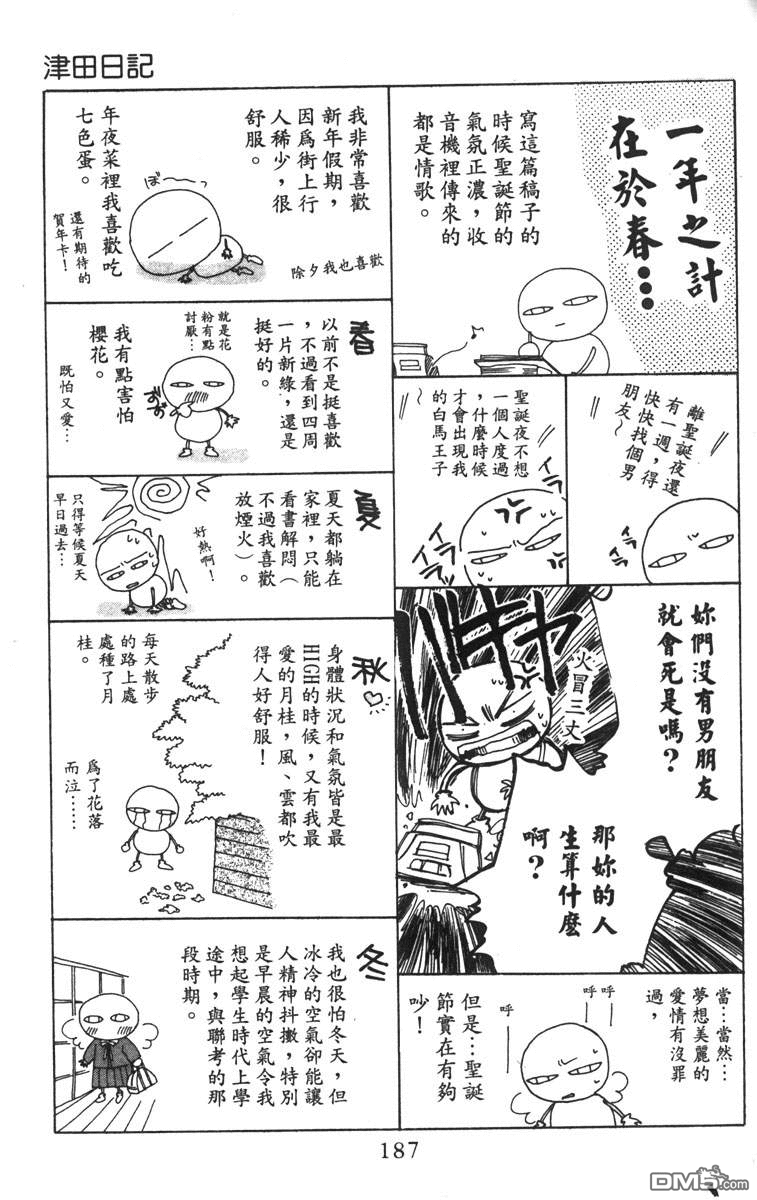 津田日記
一年之計
在於春…
寫這篇稿子的
時候聖誕節的
氣氛正濃，收
音機裡傳來的
都是情歌。
離聖誕夜還
有一週，得
快快找個男
朋友～
聖誕夜不想
一個人度過
，什麼時候
才會出現我
的白馬王子
～
イライラ
イライラ
妳們沒有男朋友
就會死是嗎？
火冒三丈
バキャ
那妳的人
生算什麼
啊？
當…當然…
夢想美麗的
愛情有沒罪
過，
呼呼
呼
但是…聖誕
節實在有夠
吵！
我非常喜歡
新年假期，
因爲街上行
人稀少，很
舒服。
ぼ～
除夕我也喜歡
年夜菜裡我喜歡吃
七色蛋。
還有期待的
賀年卡！
春
以前不是挺喜歡
，不過看到四周
一片新綠，還是
挺好的。
就是花
粉有點
討厭…
ずずっ
我有點害怕
櫻花。
既怕又愛…
夏
夏天都躺在
家裡，只能
看書解悶（
不過我喜歡
放煙火）。
好熱啊！
只得等候夏天
早日過去…
秋♡
身體狀況和氣氛皆是最
HIGH的時候，又有我最
愛的月桂，風、雲都吹
得人好舒服！
每天散步
的路上處
處種了月
桂。
爲了花落
而泣……
冬
我也很怕冬天，但
冰冷的空氣卻能讓
人精神抖擻，特別
是早晨的空氣令我
想起學生時代上學
途中，與聯考的那
段時期。
187
DM5.com